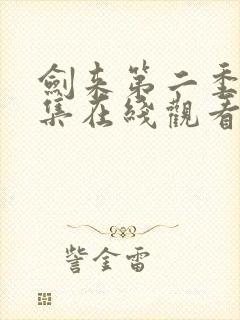 劍来第二季
集在綫觀看
訾金雷